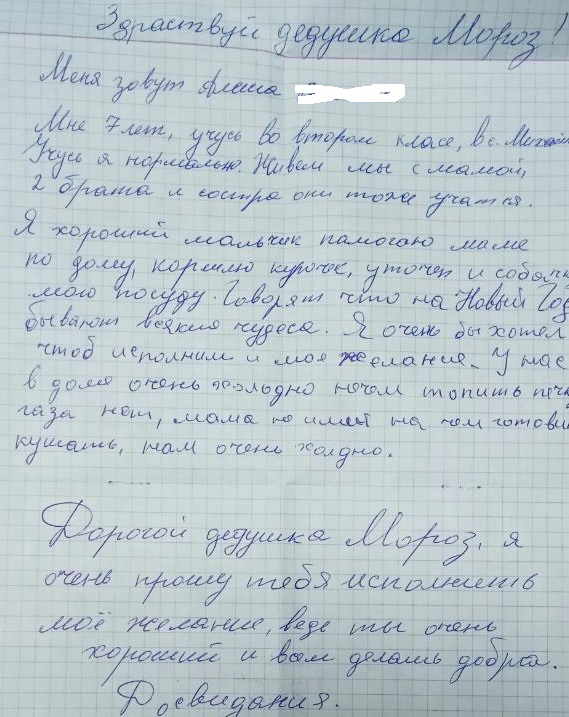 Здраствуй дедушка Мороз!
Меня зовут Алеша
Мне 7 лет, учусь во втором класе, в с.
Учусь я нормально. Живем мы с мамой,
2 брата и состра они тоже учатся.
Я хороший мальчик памогаю маме
по дому, кормлю курочек, уточек и
мою посуду. Говорят что на Новый Год
бывают всякие чудеса. Я очень бы хотел
чтоб исполним и мое желания. У нас
в доме очень холодно нечем топить
газа нет, мама не имеет на чем
кушать, нам очень холдно.
Дорогой дедушка Мороз, я
очень прошу тебя исполнить
моё желание, веде ты очень
хороший и всем делаешь добра.
Досвидания.